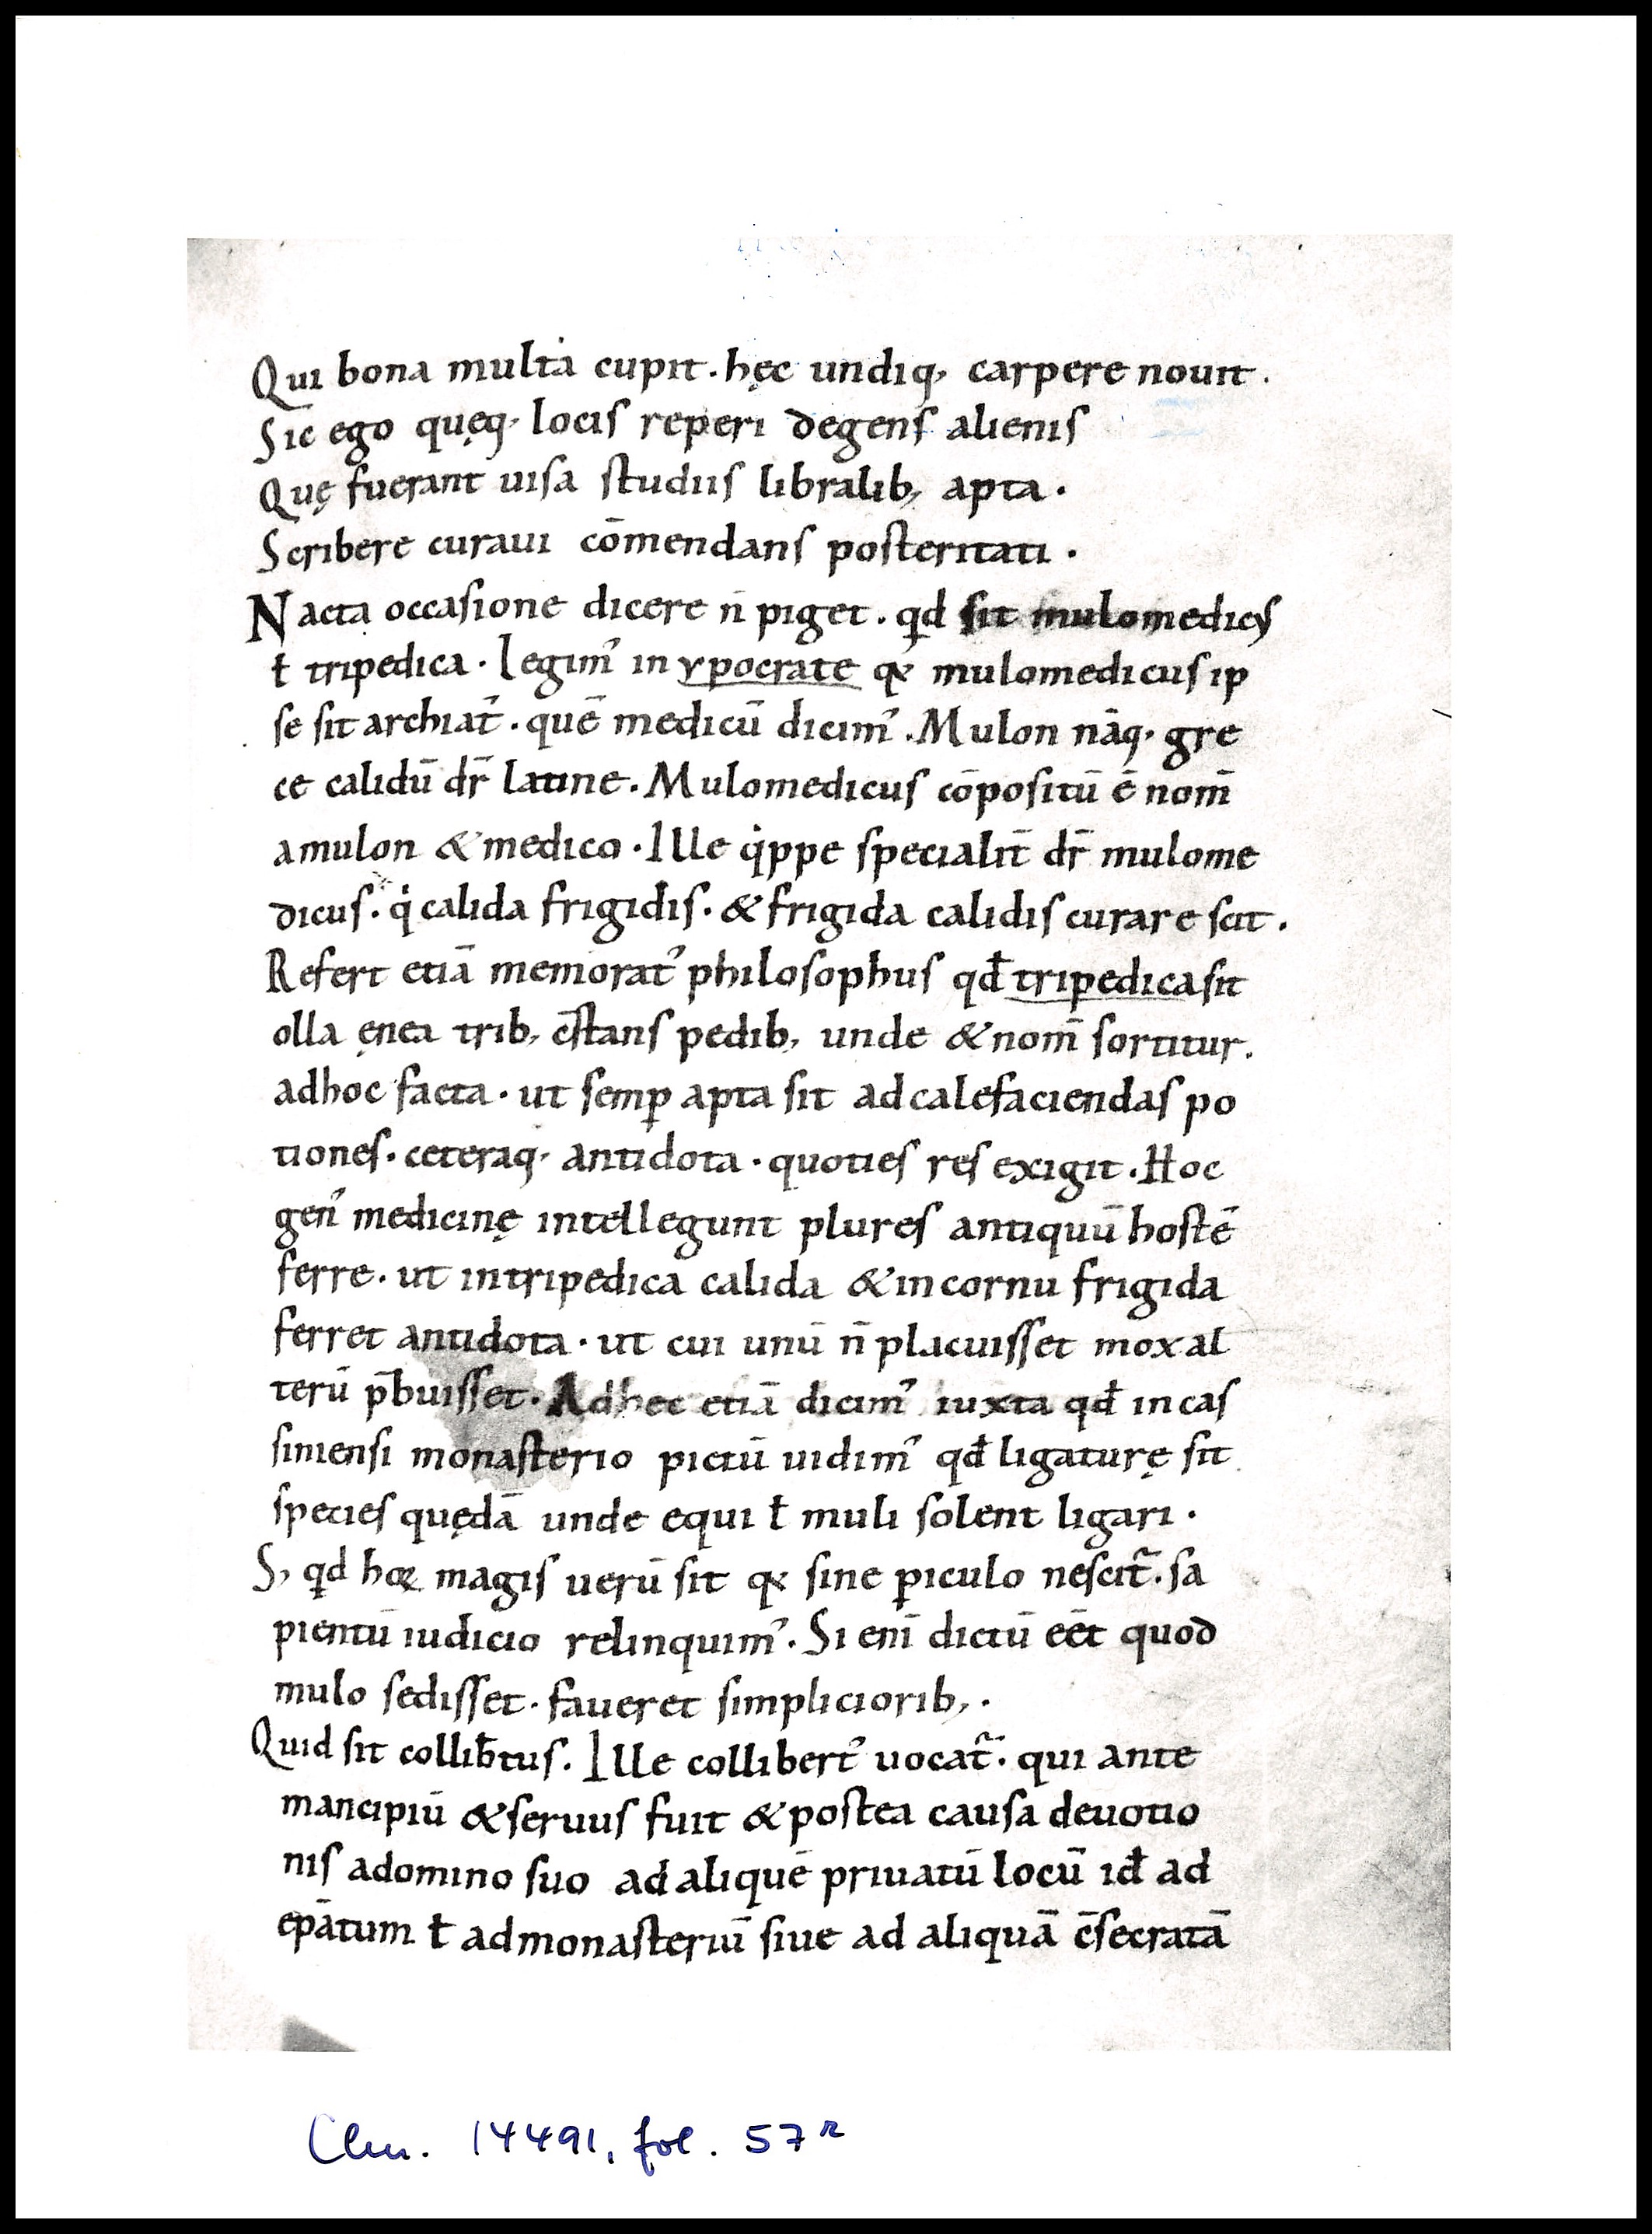 Qui bona multa cupit. hęc undiq; carpere nouit.
Sic ego quęq; locis reperi degens alienis
Quę fuerant uisa studiis libralib; apta.
Scribere curaui cōmendans posteritati.
Nacta occasione dicere n̄ piget. qđ sit mulomedicus
ł tripedica. Legim᾽ in ypocrate qꝫ mulomedicus ip
se sit archiat᾽. quē medicū dicim᾽. Mulon nāq; gre
ce calidū dr̄ latine. Mulomedicus cōpositū ē nom̄
amulon & medico. Ille qͥppe specialit̄ dr̄ mulome
dicus. qͥ calida frigidis. & frigida calidis curare scit.
Refert etiā memorat᾽ philosophus qđ tripedica sit
olla ęnea trib; c̄stans pedib; unde & nom̄ sortitur.
adhoc facta. ut semꝑ apta sit adcalefaciendas po
tiones. ceteraq; antidota. quoties res exigit. Hoc
gen᾽ medicinę intellegunt plures antiquū hostē
ferre. ut intripedica calida & incornu frigida
ferret antidota. ut cui unū n̄ placuisset mox al
terū p̄buisset. Adhec etiā dicim᾽ iuxta qđ incas
siniensi monasterio pictū uidim᾽ qđ ligaturę sit
species quędā unde equi ł muli solent ligari.
S; qđ hoꝝ magis uerū sit qꝫ sine ꝑiculo nescit᷑. sa
pientū iudicio relinquim᾽. Si eni̅ dictū eēt quod
mulo sedisset. faueret simpliciorib;.
Quid sit collib̄tus. Ille collibert᾽ uocat᷑. qui ante
mancipiū & seruus fuit & postea causa deuotio
nis adomino suo ad aliquē priuatū locū id̄ ad
epātum ł admonasteriū siue ad aliquā c̄secratā
Clm. 14491, fol. 57r